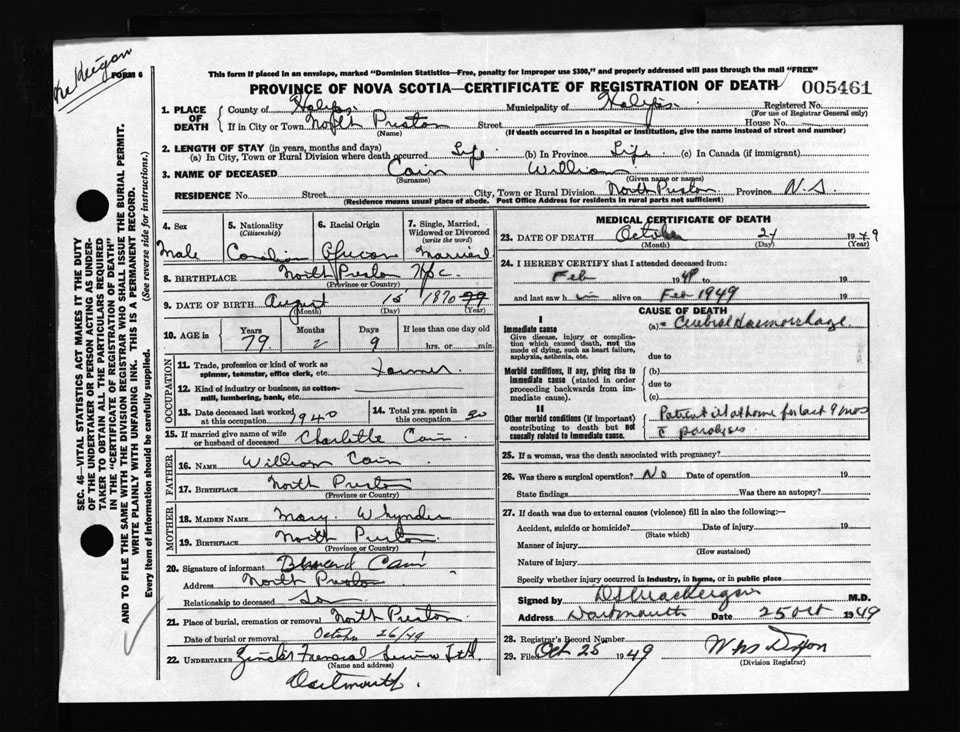 FORM 6
This form if placed in an envelope, marked "Dominion Statistics—Free, penalty for improper use $300," and properly addressed will pass through the mail "FREE"
PROVINCE OF NOVA SCOTIA—CERTIFICATE OF REGISTRATION OF DEATH 005461
1. PLACE OF DEATH County of Halifax Municipality of Halifax Registered No.
(For use of Registrar General only)
If in City or Town North Preston Street House No.
(Name) (If death occurred in a hospital or institution, give the name instead of street and number)
2. LENGTH OF STAY (in years, months and days)
(a) In City, Town or Rural Division where death occurred Life (b) In Province Life (c) In Canada (if immigrant)
3. NAME OF DECEASED Cain William
(Surname) (Given name or names)
RESIDENCE No. Street City, Town or Rural Division North Preston Province N.S.
(Residence means usual place of abode. Post Office Address for residents in rural parts not sufficient)
4. Sex 5. Nationality (Citizenship) 6. Racial Origin 7. Single, Married, Widowed or Divorced (write the word)
Male Canadian African Married
8. BIRTHPLACE North Preston Hfx C.
(Province or Country)
9. DATE OF BIRTH August 15 1870
(Month) (Day) (Year)
10. AGE in Years Months Days If less than one day old
79 2 9 hrs. or min.
OCCUPATION
11. Trade, profession or kind of work as spinner, teamster, office clerk, etc. Farmer
12. Kind of industry or business, as cotton-mill, lumbering, bank, etc.
13. Date deceased last worked at this occupation 1940 14. Total yrs. spent in this occupation 50
15. If married give name of wife or husband of deceased Charlotte Cain
FATHER
16. NAME William Cain
17. BIRTHPLACE North Preston
(Province or Country)
MOTHER
18. MAIDEN NAME Mary Whynder
19. BIRTHPLACE North Preston
(Province or Country)
20. Signature of informant Cain
Address North Preston
Relationship to deceased Son
21. Place of burial, cremation or removal North Preston
Date of burial or removal October 26/49
22. UNDERTAKER Funeral Service Ltd.
(Name and address)
Dartmouth.
MEDICAL CERTIFICATE OF DEATH
23. DATE OF DEATH October 24 1949
(Month) (Day) (Year)
24. I HEREBY CERTIFY that I attended deceased from:
Feb 1949 to 19
and last saw him alive on Feb 1949 19
CAUSE OF DEATH
I
Immediate cause (a) Cerebral Haemorrhage.
Give disease, injury or complication which caused death, not the mode of dying, such as heart failure, asphyxia, asthenia, etc.
due to
Morbid conditions, if any, giving rise to immediate cause (stated in order proceeding backwards from immediate cause).
(b)
due to
(c)
II
Other morbid conditions (if important) contributing to death but not causally related to immediate cause.
Patient ill at home for last 9 mos
c paralysis
25. If a woman, was the death associated with pregnancy?
26. Was there a surgical operation? No Date of operation 19
State findings Was there an autopsy?
27. If death was due to external causes (violence) fill in also the following:—
Accident, suicide or homicide? Date of injury 19
(State which)
Manner of injury
(How sustained)
Nature of injury
Specify whether injury occurred in industry, in home, or in public place
Signed by M.D.
Address Dartmouth Date 25 Oct 1949
28. Registrar's Record Number
29. Filed Oct 25 1949
(Division Registrar)
SEC. 46—VITAL STATISTICS ACT MAKES IT THE DUTY
OF THE UNDERTAKER OR PERSON ACTING AS UNDER-
TAKER TO OBTAIN ALL THE PARTICULARS REQUIRED
IN THE "CERTIFICATE OF REGISTRATION OF DEATH"
AND TO FILE THE SAME WITH THE DIVISION REGISTRAR WHO SHALL ISSUE THE BURIAL PERMIT.
WRITE PLAINLY WITH UNFADING INK. THIS IS A PERMANENT RECORD.
Every item of information should be carefully supplied. (See reverse side for instructions.)